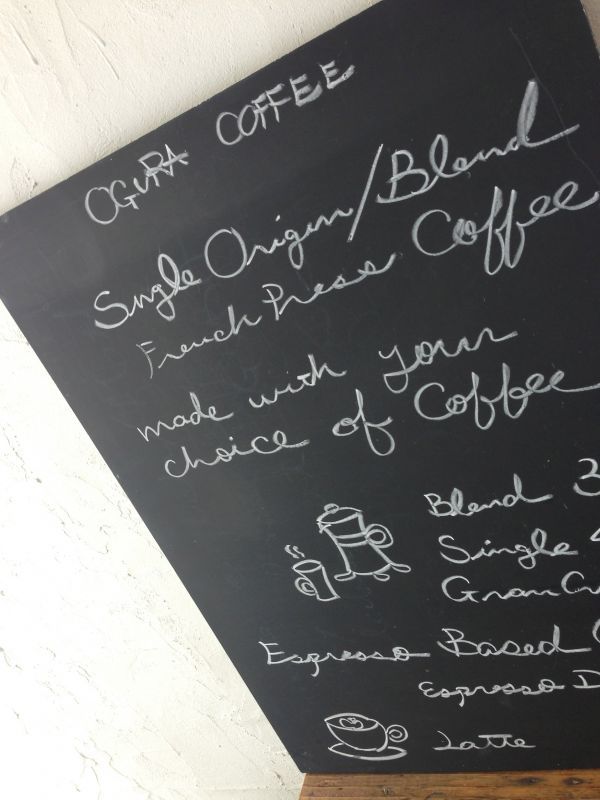 OGURA COFFEE
Single Origin/Blend
French Press Coffee
made with your
choice of Coffee
Blend 3
Single
Gran
Espresso Based
Espresso D
Latte